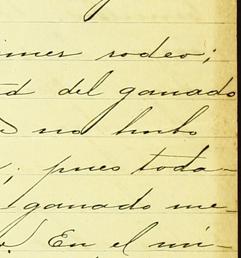 imer rodeo;
d del ganado
no hubo
; pues toda-
ganado me-
. En el mi-